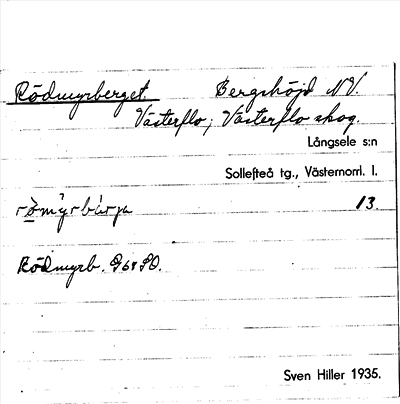 Rödmyrberget. Bergshöjd NV.
Västerflo; Västerflo skog.
Långsele s:n
Sollefteå tg., Västernorrl. l.
rö̀my̆rbàrja 13.
Rödmyrb. G68SO.
Sven Hiller 1935.